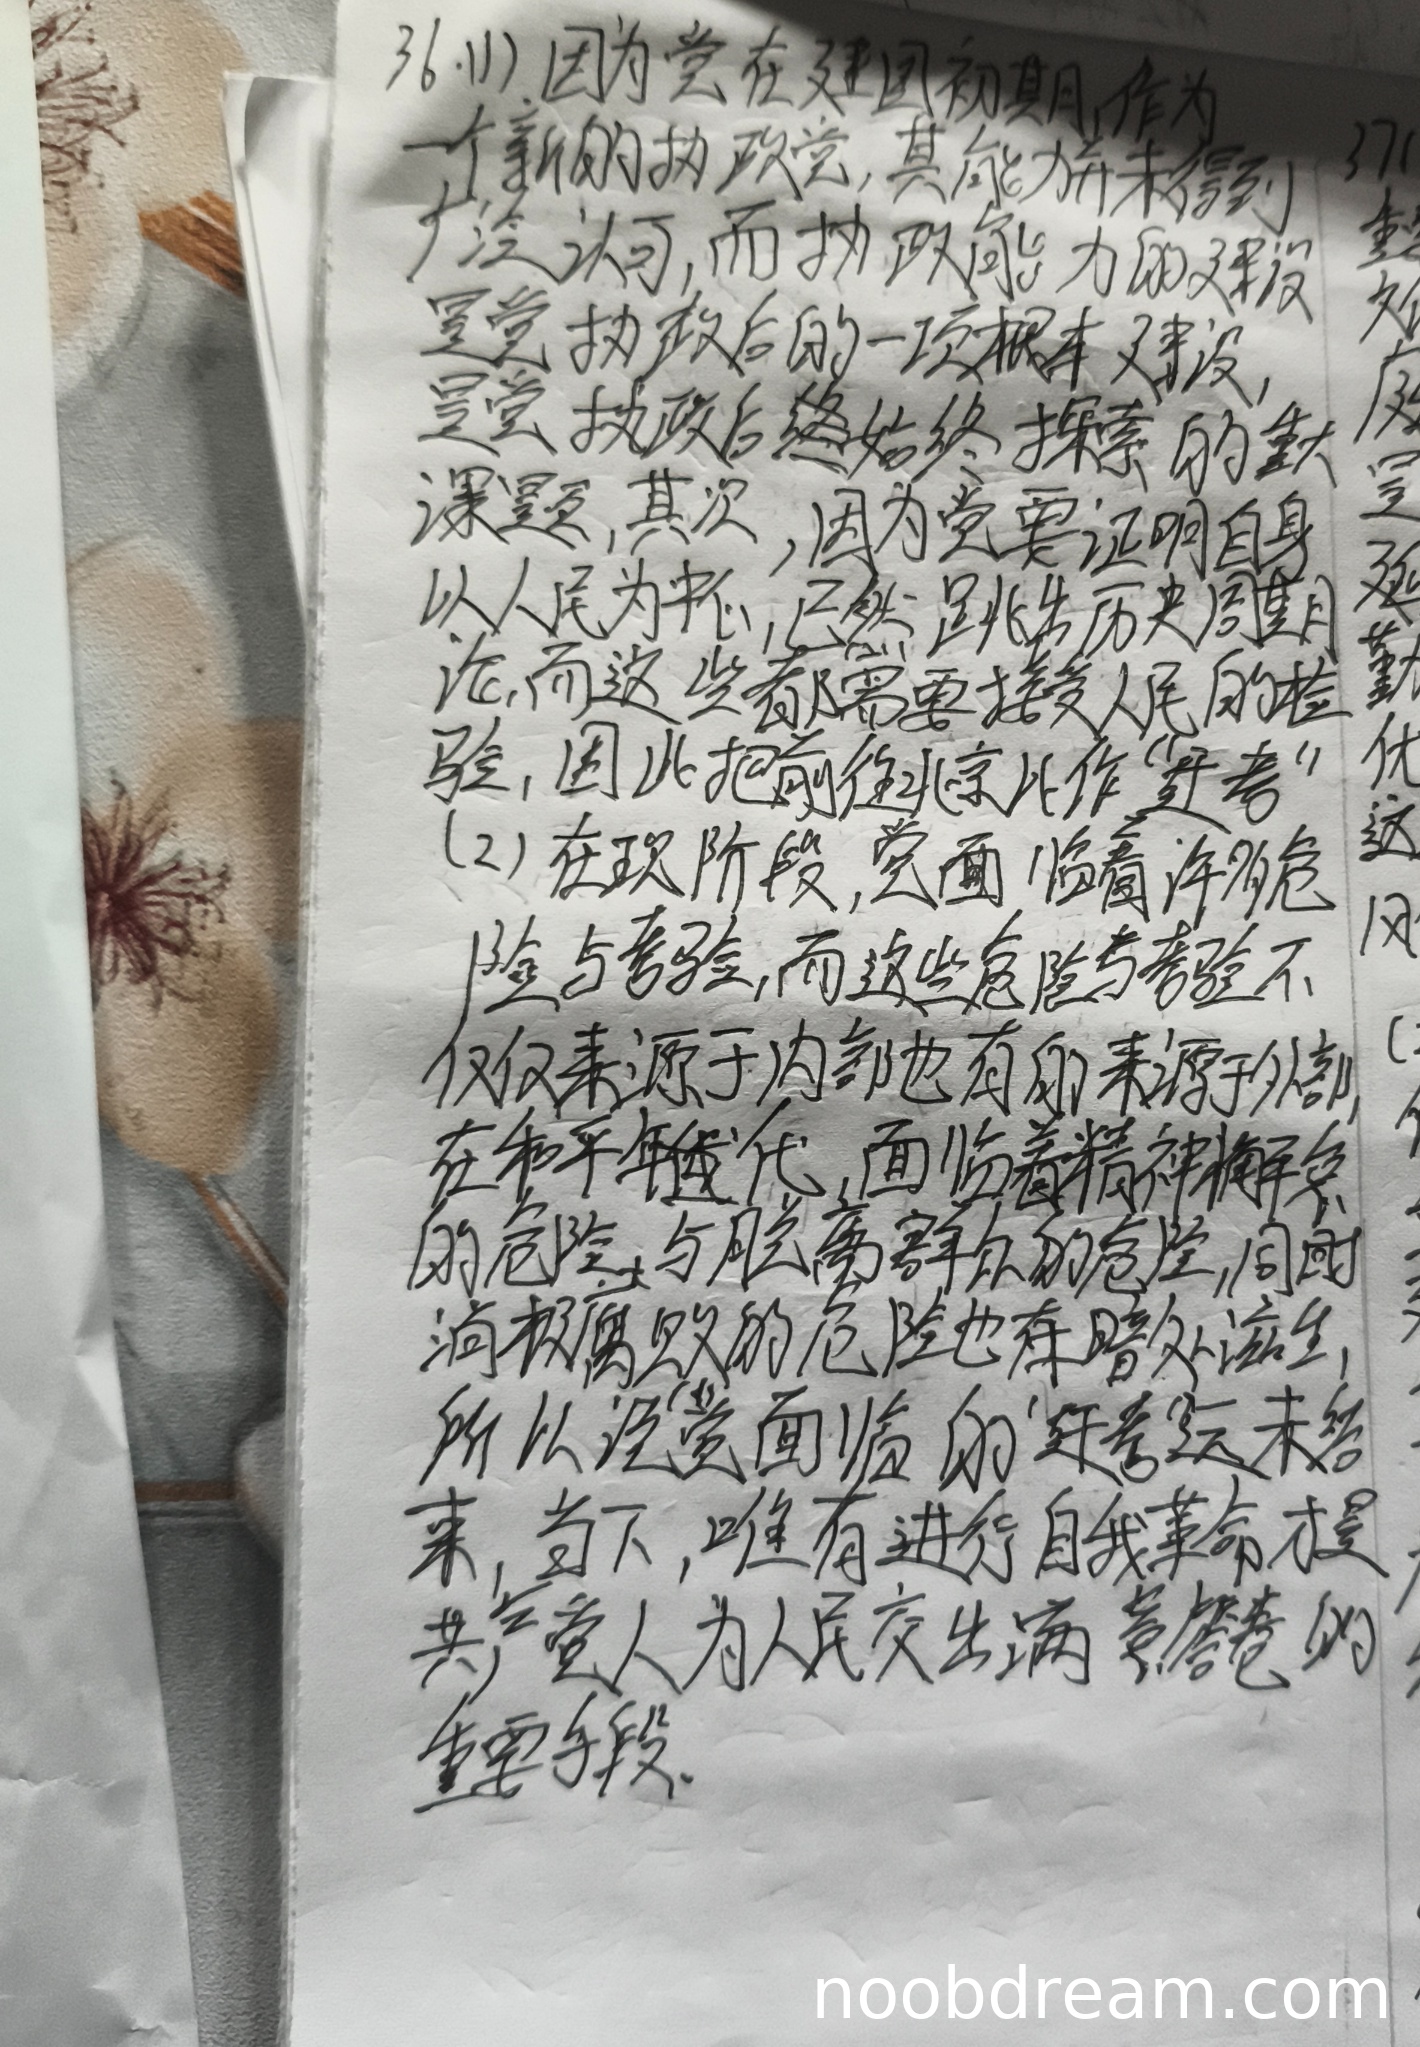 36.(1) 因为党在建国初期,作为
一个新的执政党,其能力并未得到
广泛认可,而执政能力的建设
是党执政后的一项根本建设,
是党执政后始终探索的重大
课题,其次,因为党要证明自身
以人民为中心,已然跳出历史周期
论,而这些都需要接受人民的检
验,因此把前往北京比作“赶考”
(2) 在现阶段,党面临着许多危
险与考验,而这些危险与考验不
仅仅来源于内部也有的来源于外部,
在和平年代,面临着精神懈怠
的危险与脱离群众的危险,同时
消极腐败的危险也在暗处滋生,
所以说党面临的“赶考”远未结
束,当下,唯有进行自我革命才是
共产党人为人民交出满意答卷的
重要手段.
371
这
noobdream.com